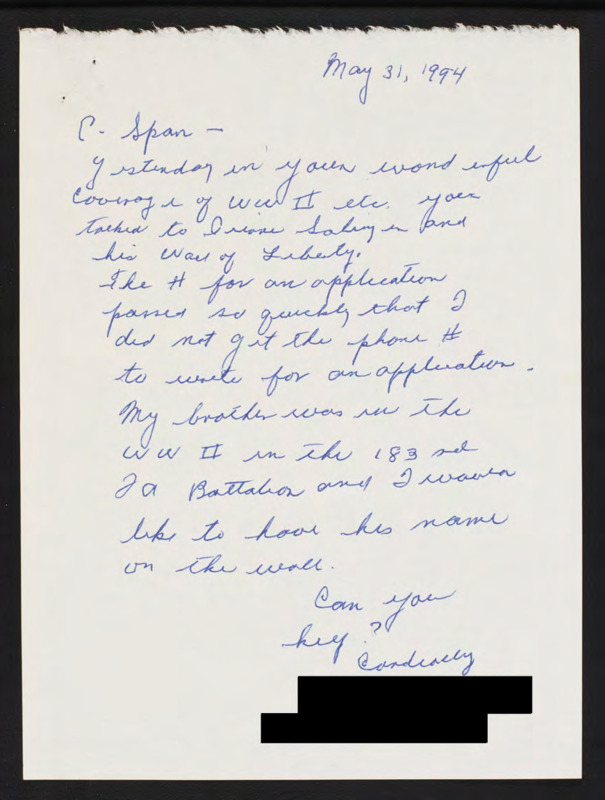 May 31, 1994
C-Span -
Yesterday in your wonderful
coverage of WW II etc. you
talked to and
his Wall of Liberty.
The # for an application
passed so quickly that I
did not get the phone #
to write for an application.
My brother was in the
WW II in the 183 rd
Fa Battalion and I would
like to have his name
on the wall.
Can you
help?
Cordially